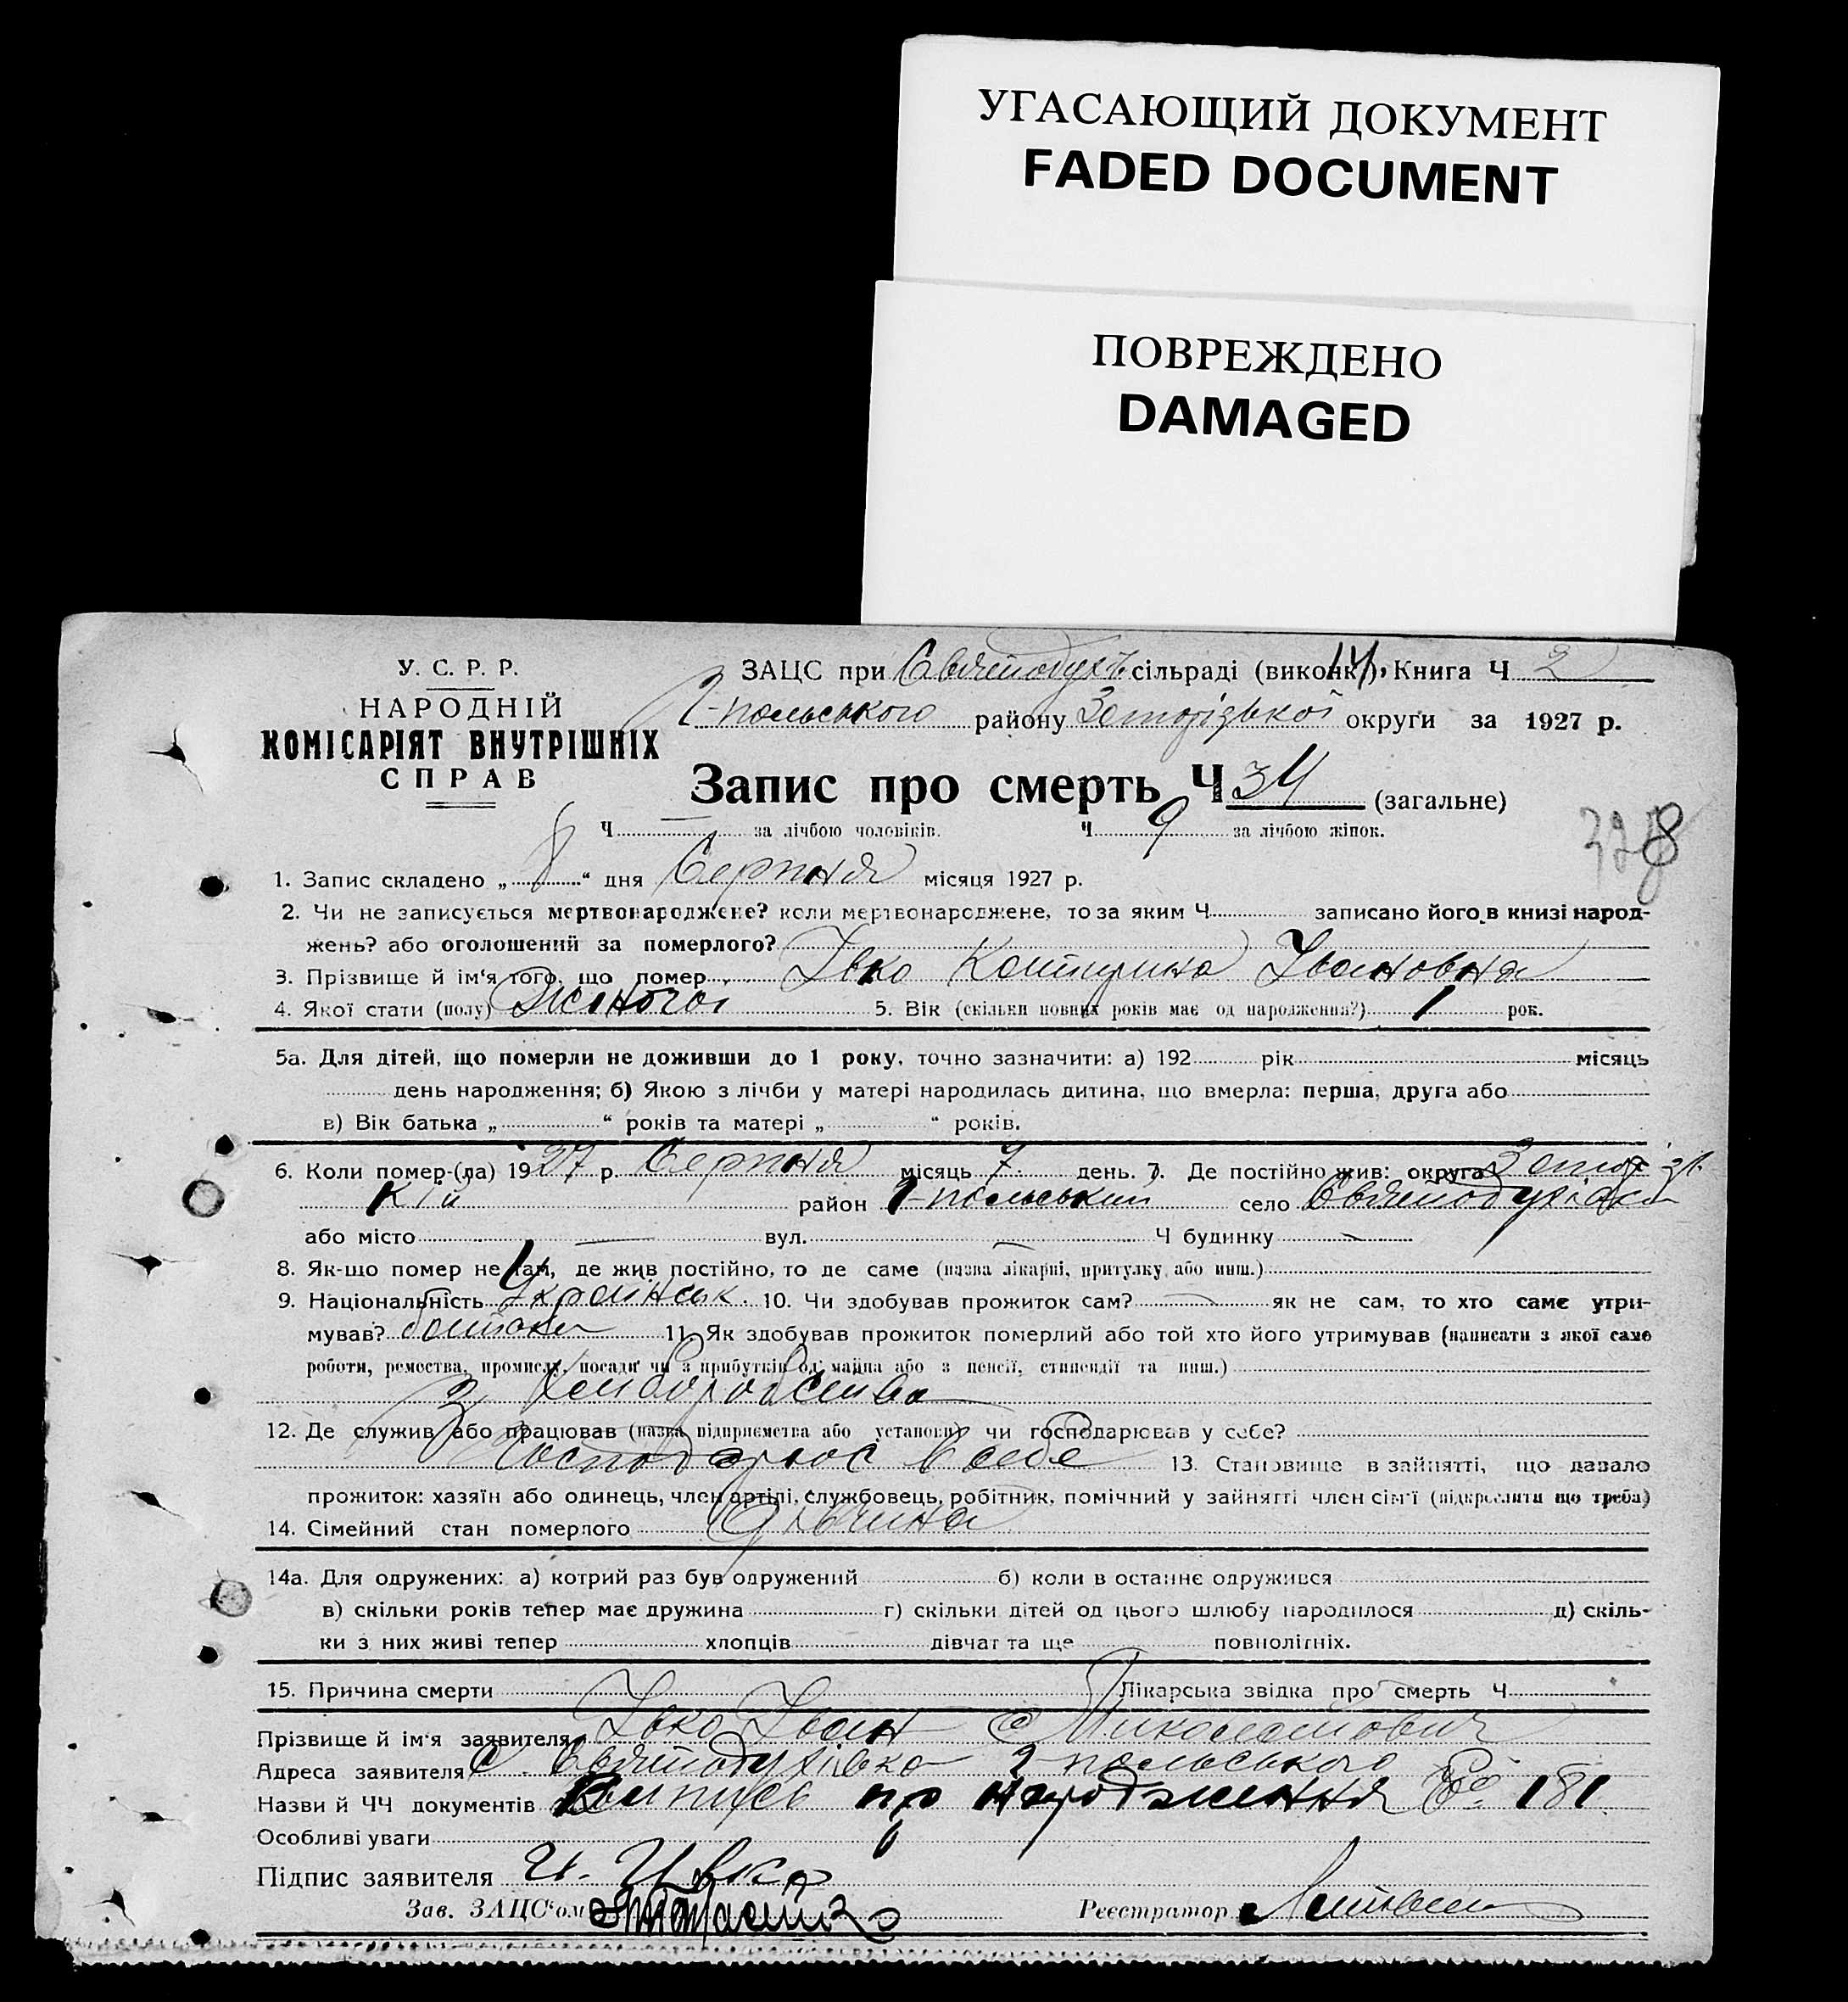 УГАСАЮЩИЙ ДОКУМЕНТ
FADED DOCUMENT
ПОВРЕЖДЕНО
DAMAGED
У. С. Р. Р.
НАРОДНІЙ
КОМІСАРІЯТ ВНУТРІШНІХ
СПРАВ
ЗАЦС при Святодухъ сільраді (виконк), Книга Ч 2
польського району Запорізької округи за 1927 р.
Запис про смерть Ч 34 (загальне)
Ч за лічбою чоловіків. Ч 9 за лічбою жінок.
328
1. Запис складено „ 8 “ дня Серпня місяця 1927 р.
2. Чи не записується мертвонароджене? коли мертвонароджене, то за яким Ч записано його в книзі народ-
жень? або оголошений за померлого?
3. Прізвище й ім‘я того, що помер Івко Катерина Івановна
4. Якої статі (полу) Жіночої 5. Вік (скільки повних років має од народження?) 1 рок.
5а. Для дітей, що померли не доживши до 1 року, точно зазначити: а) 192 рік місяць
день народження; б) Якою з лічби у матері народилась дитина, що вмерла: перша, друга або
в) Вік батька „ “ років та матері „ “ років.
6. Коли помер-(ла) 1927 р. Серпня місяць 7 день. 7. Де постійно жив: округа Запоріз
кій район І-польський село Святодухівка
або місто — вул. — Ч будинку —
8. Як-що помер не там, де жив постійно, то де саме (назва лікарні, притулку або инш.)
9. Національність Українськ. 10. Чи здобував прожиток сам? — як не сам, то хто саме утри-
мував? батько 11. Як здобував прожиток померлий або той хто його утримував (написати з якої саме
роботи, ремества, промислу, посади чи з прибутків од майна або з пенсії, стипендії та инш.)
З хліборобства
12. Де служив або працював (назва підприємства або установи) чи господарював у себе?
Господарює в себе 13. Становище в зайнятті, що давало
прожиток: хазяїн або одинець, член артілі, службовець, робітник, помічний у зайнятті член сім‘ї (підкреслити що треба)
14. Сімейний стан померлого дівчина
14а. Для одружених: а) котрий раз був одружений б) коли в останнє одружився
в) скільки років тепер має дружина г) скільки дітей од цього шлюбу народилося д) скіль-
ки з них живі тепер хлопців дівчат та ще повнолітніх.
15. Причина смерти Лікарська звідка про смерть Ч
Прізвище й ім‘я заявителя Івко Іван
Адреса заявителя с. Святодухівка І-польського
Назви й ЧЧ документів Выпись про народження № 181
Особливі уваги
Підпис заявителя И. Ивко
Зав. ЗАЦС‘ом Реєстратор